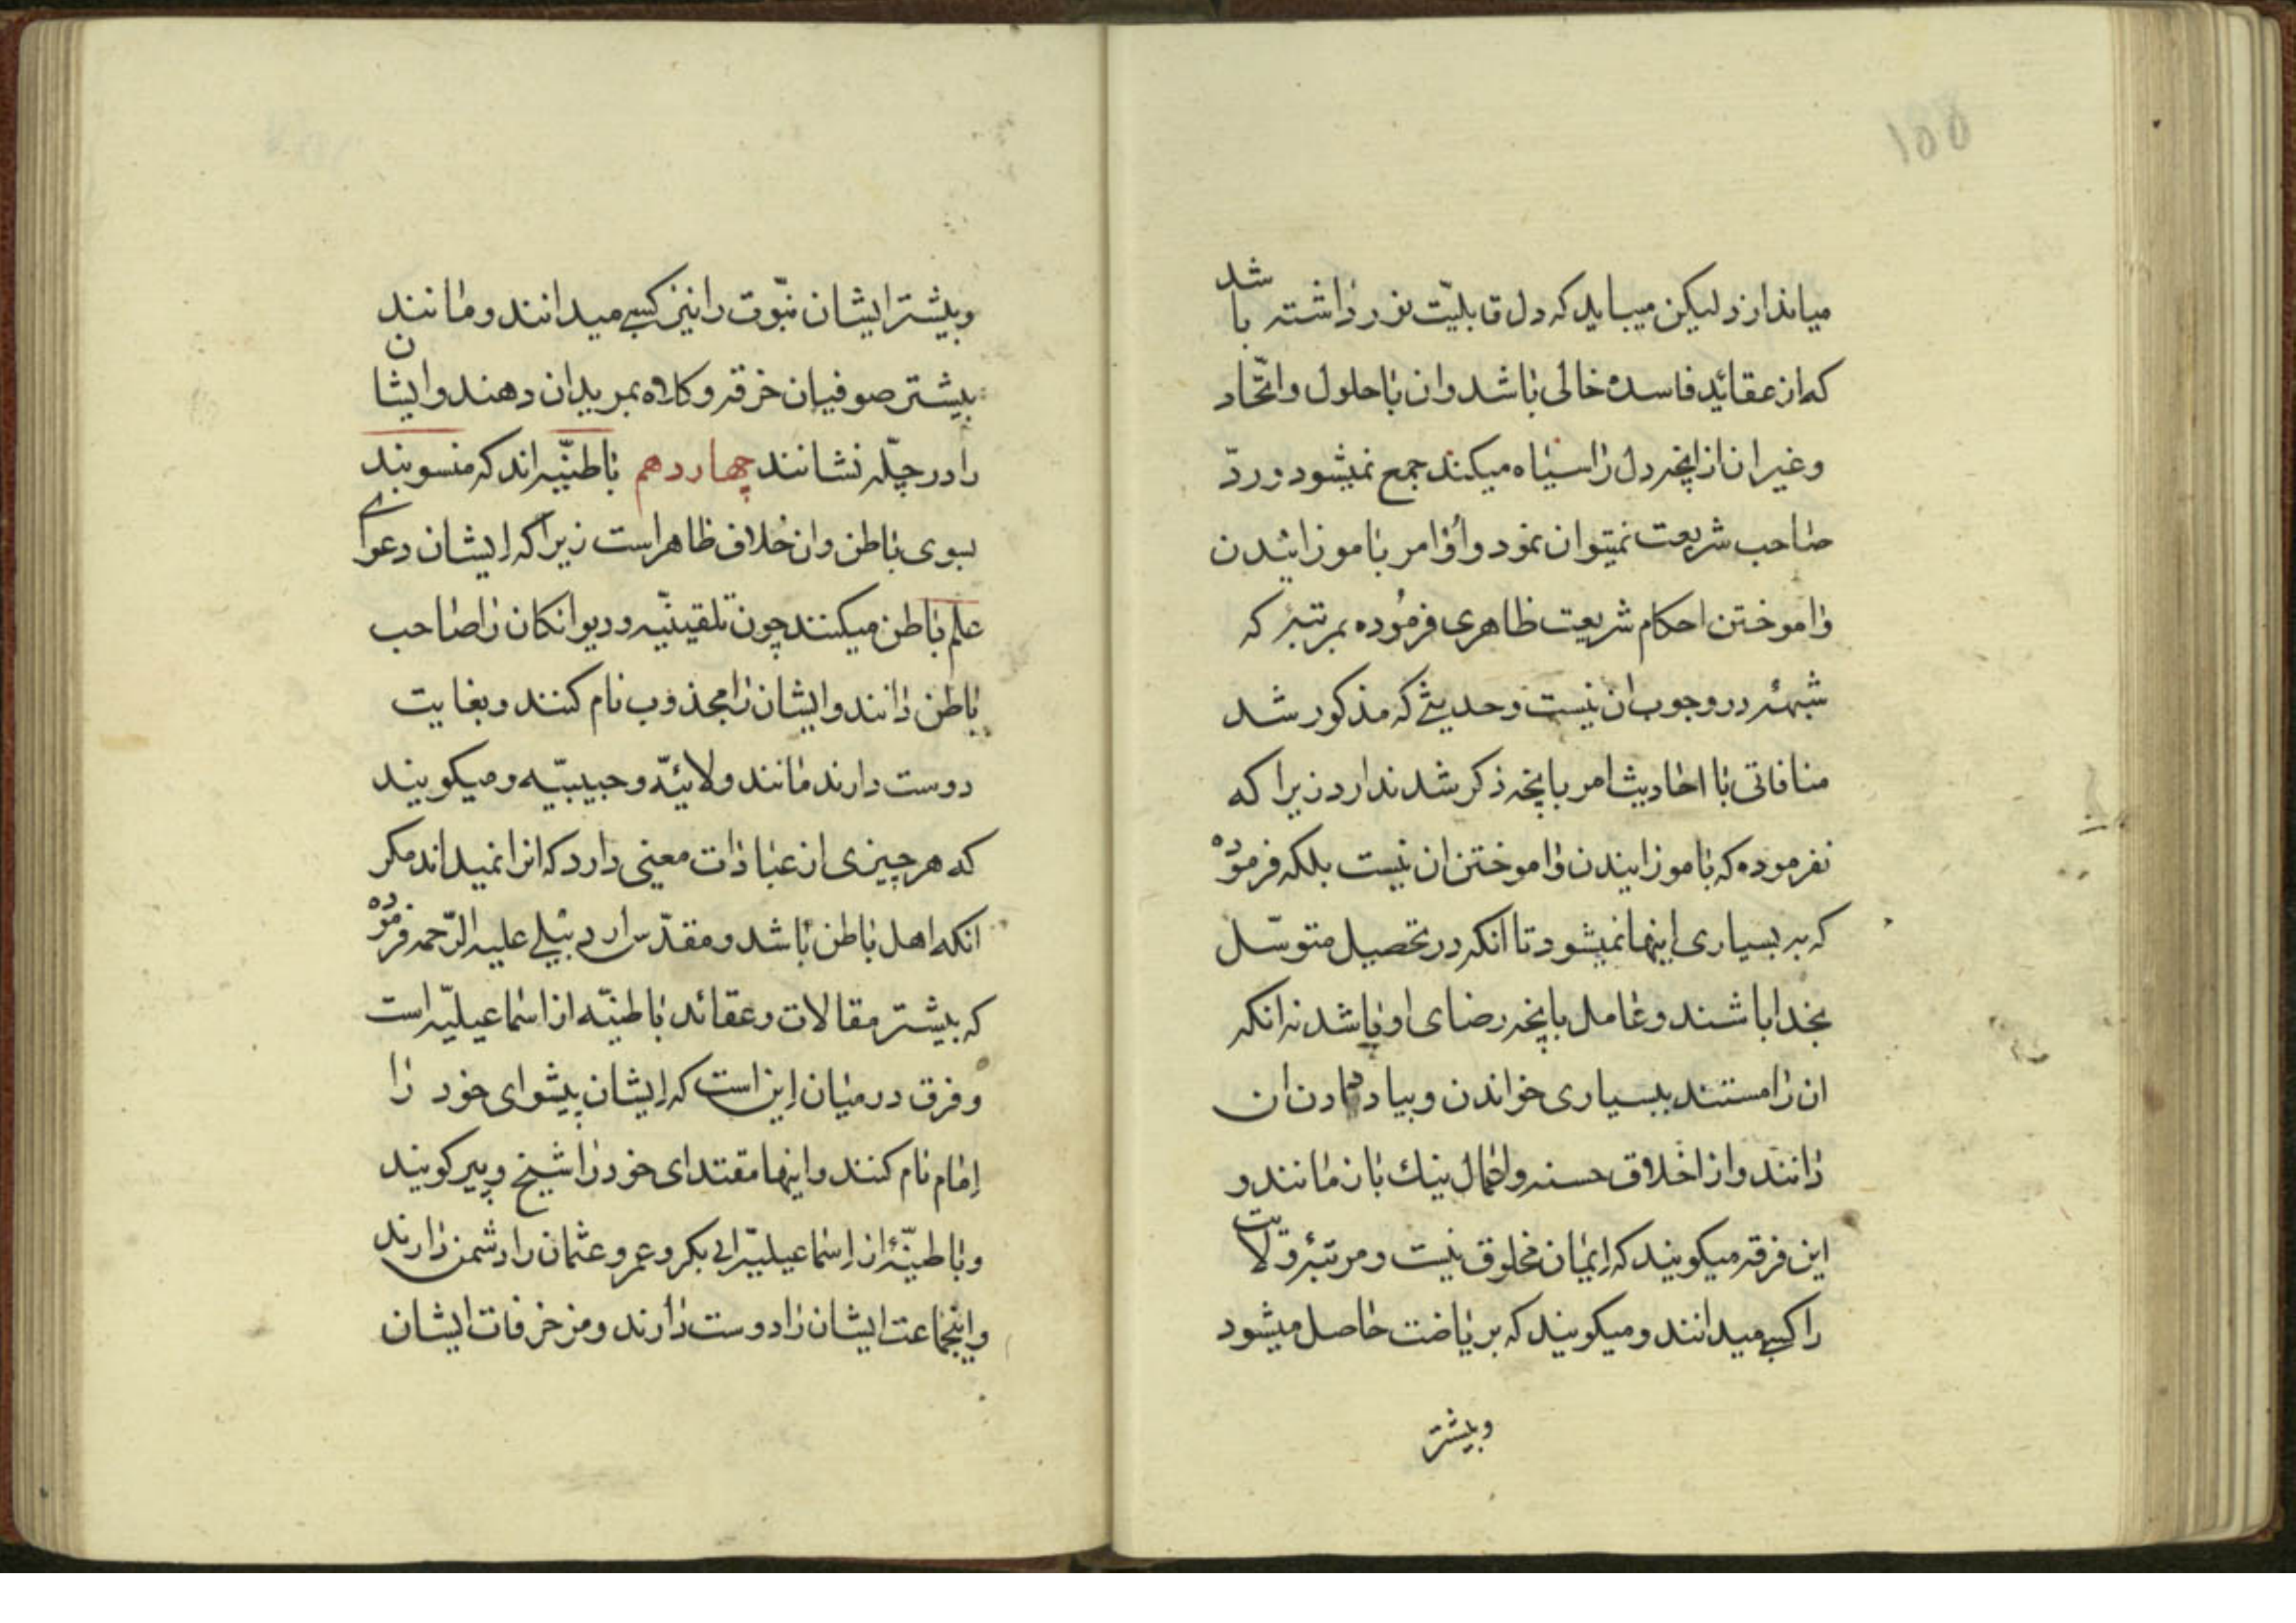 ۱۵۵
میاندازد لیکن میباید که دل قابلیّت نور داشته باشد
که از عقائد فاسده خالی باشد وان با حلول واتّحاد
وغیر ان از انچه دل را سیاه میکند جمع نمیشود وردّ
صاحب شریعت نمیتوان نمود واوامر باموزانیدن
واموختن احکام شریعت ظاهری فرموده بمرتبۀ که
شبهۀ در وجوب ان نیست وحدیثی که مذکور شد
منافاتی با احادیث امر بانچه ذکر شد ندارد زیرا که
نفرموده که باموزانیدن واموختن ان نیست بلکه فرموده
که به بسیاری اینها نمیشود تا انکه در تحصیل متوسّل
بخدا باشند وعامل بانچه رضای او باشد نه انکه
ان را مستند ببسیاری خواندن وبیاد دادن ان
دانند واز اخلاق حسنه واعمال نیك باز مانند و
این فرقه میکویند که ایمان مخلوق نیست ومرتبۀ ولایت
را کسبی میدانند ومیکویند که بریاضت حاصل میشود
وبیشتر
وبیشتر ایشان نبّوت را نیز کسبی میدانند ومانند
بیشتر صوفیان خرقه وکلاه بمریدان دهند وایشان
را در چلّه نشانند چهاردهم باطنیّه اند که منسوبند
بسوی باطن وان خلاف ظاهر است زیرا که ایشان دعوای
علم باطن میکنند چون تلقینیّه ودیوانکان را صاحب
باطن دانند وایشان را مجذوب نام کنند وبغایت
دوست دارند مانند ولائیّه وحبیبیّه ومیکویند
که هر چیزی از عبادات معنی دارد که انرا نمیداند مکر
انکه اهل باطن باشد ومقدّس اردبیلی علیه الرّحمه فرموده
که بیشتر مقالات وعقائد باطنیّه از اسماعیلیّه است
وفرق در میان این است که ایشان پیشوای خود را
امام نام کنند واینها مقتدای خود را شیخ وپیر کویند
وباطنیّۀ از اسماعیلیّه ابی بکر وعمر وعثمان را دشمن دارند
واینجماعت ایشان را دوست دارند ومزخرفات ایشان